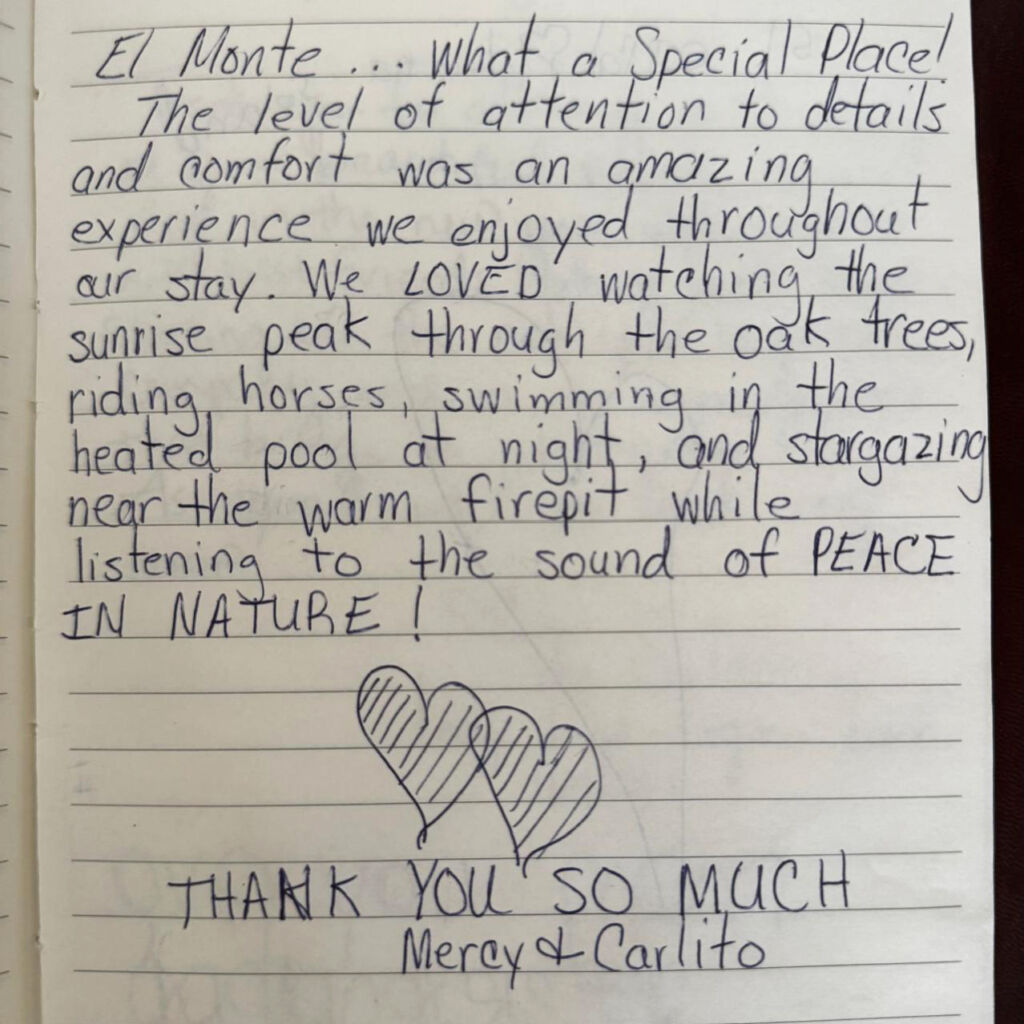 El Monte ... What a Special Place!
The level of attention to details
and comfort was an amazing
experience we enjoyed throughout
our stay. We LOVED watching the
sunrise peak through the oak trees,
riding horses, swimming in the
heated pool at night, and stargazing
near the warm firepit while
listening to the sound of PEACE
IN NATURE!
THANK YOU SO MUCH
Mercy & Carlito